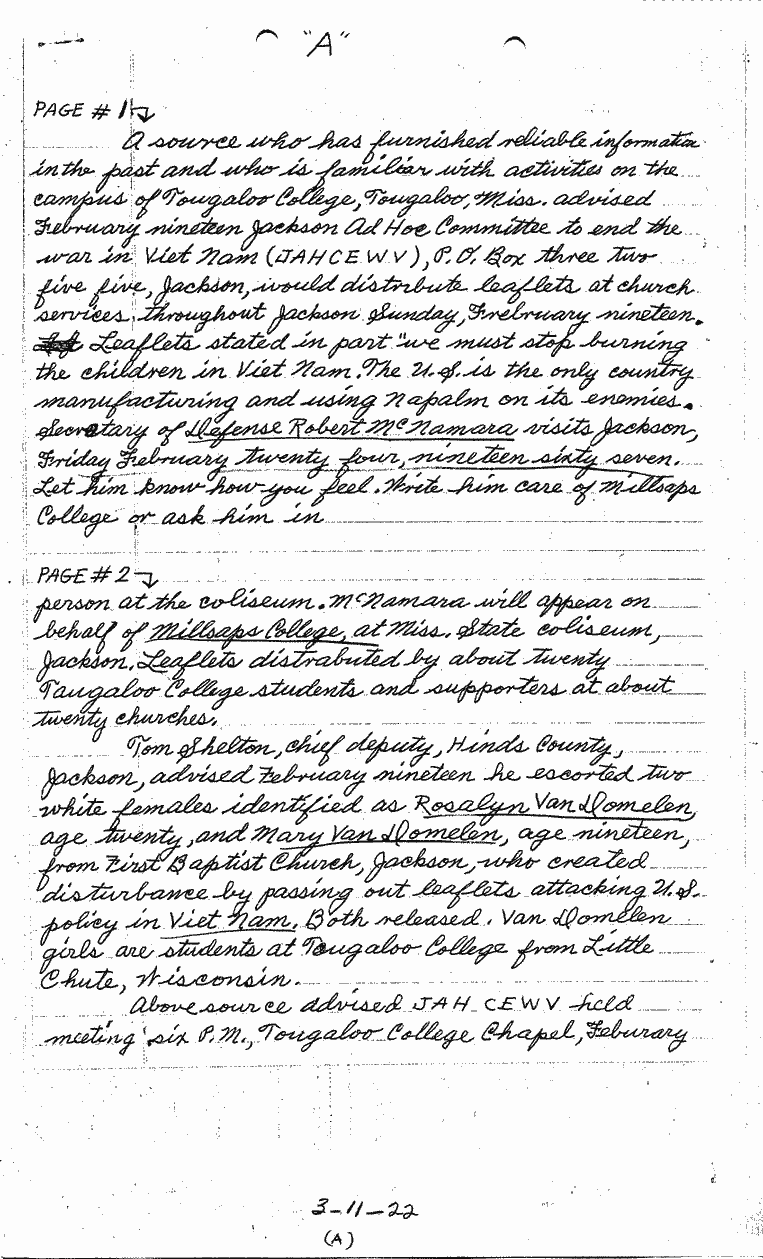 "A"
PAGE # 1
A source who has furnished reliable information
in the past and who is familiar with activities on the
campus of Tougaloo College, Tougaloo, Miss. advised
February nineteen Jackson Ad Hoc Committee to end the
war in Viet Nam (JAHCEWV), P.O. Box three two
five five, Jackson, would distribute leaflets at church
services throughout Jackson Sunday, Frebruary nineteen.
Leaflets stated in part "we must stop burning
the children in Viet Nam. The U.S. is the only country
manufacturing and using napalm on its enemies.
Secretary of Defense Robert McNamara visits Jackson,
Friday February twenty four, nineteen sixty seven.
Let him know how you feel. Write him care of Millsaps
College or ask him in
PAGE # 2
person at the coliseum. McNamara will appear on
behalf of Millsaps College, at Miss. State coliseum,
Jackson. Leaflets distrabuted by about twenty
Taugaloo College students and supporters at about
twenty churches.
Tom Shelton, chief deputy, Hinds County,
Jackson, advised February nineteen he escorted two
white females identified as Rosalyn Van Domelen,
age twenty, and Mary Van Domelen, age nineteen,
from First Baptist Church, Jackson, who created
disturbance by passing out leaflets attacking U.S.
policy in Viet Nam. Both released. Van Domelen
girls are students at Tougaloo College from Little
Chute, Wisconsin.
Above source advised JAH CEWV held
meeting six P.M., Tougaloo College Chapel, Feburary
3-11-22
(A)